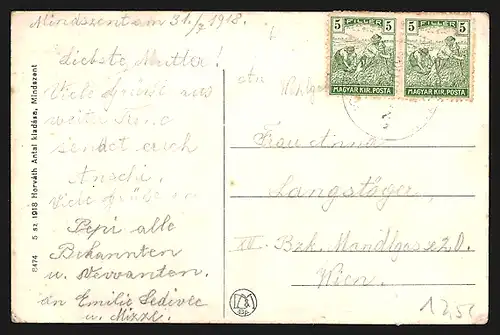 Mindszent am 31./7 1918.
Liebste Mutter!
Viele Grüße aus
weiter Ferne
sendet euch
Anschi.
Viele Grüße an
Pepi alle
Bekannten
u. Verwanten.
an Emilie Sedivec
u. Mizzi.
8474 5 sz. 1918 Horváth Antal kiadása, Mindszent
5 FILLER 5
MAGYAR KIR. POSTA
5 FILLER 5
MAGYAR KIR. POSTA
An
Frau Anna
Langstöger
XII. Bzk. Mandlgasse 20.
Wien.
12,50